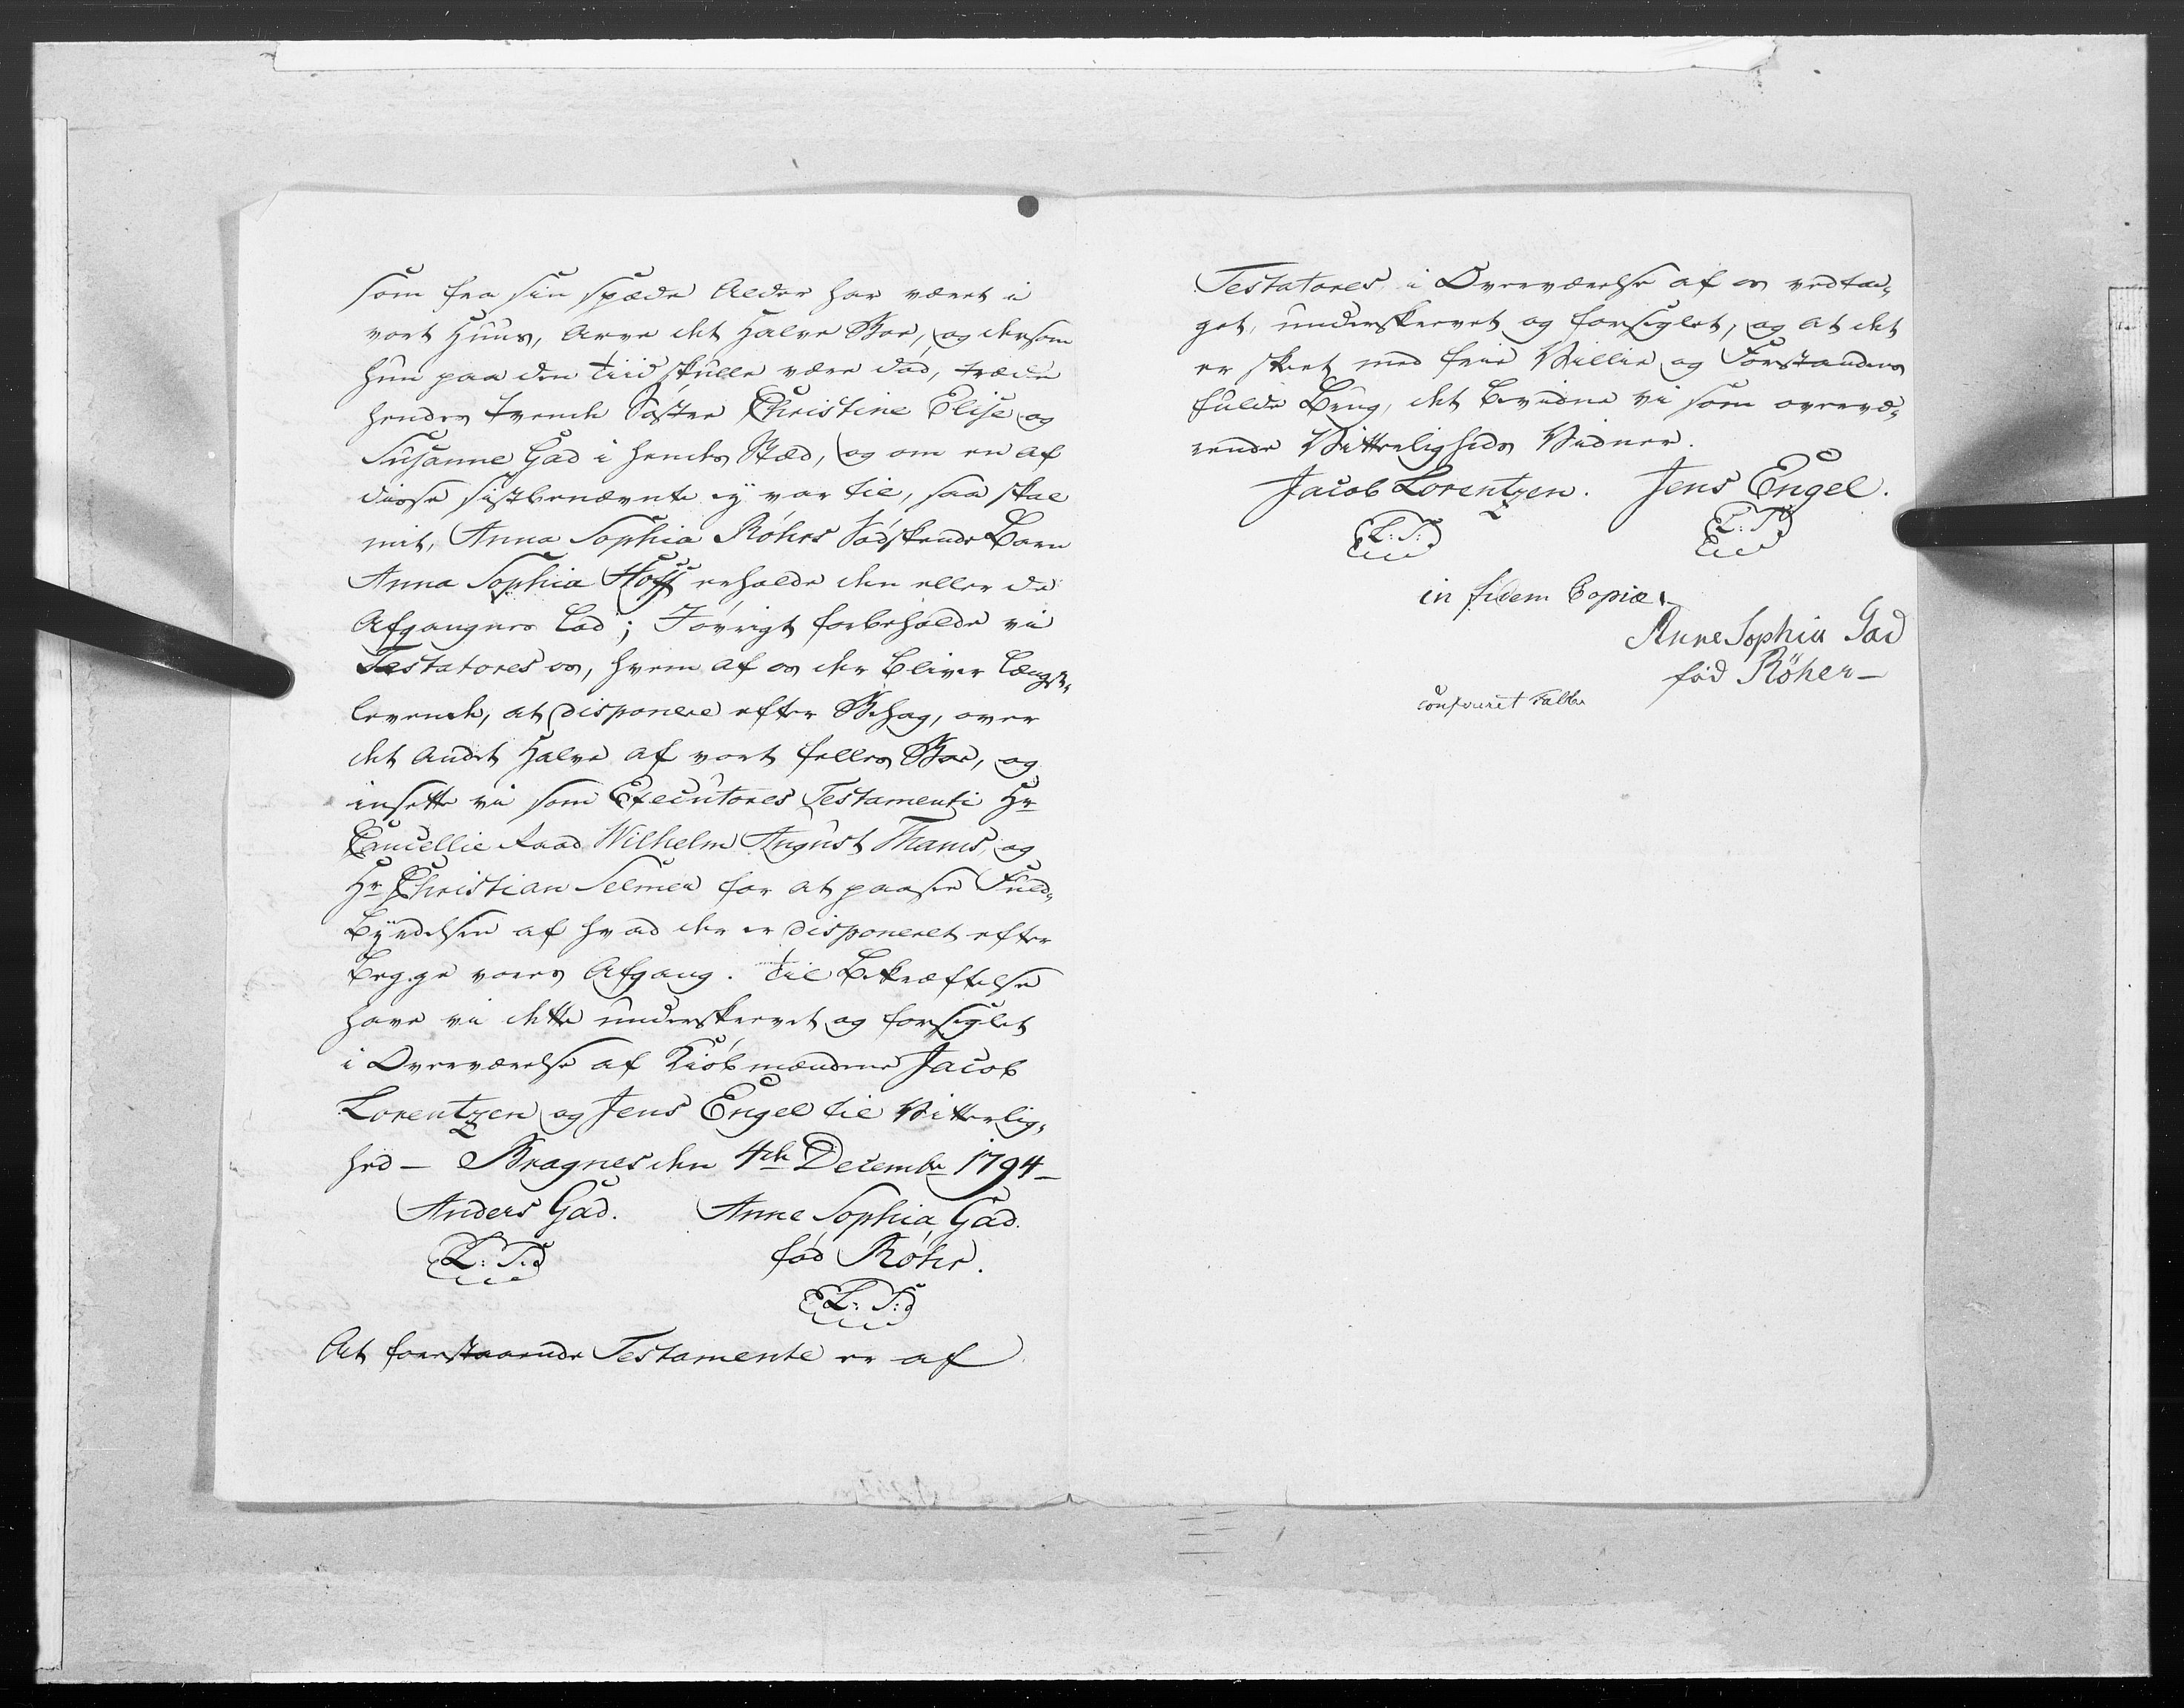 som fra sin spæde Alder har været i
vort Huus, Arve det Halve Boe, og dersom
hun paa den tiid skulle være død, træde
hendes tvende Søstre Christine Elise og
Susanne Gad i hendes Stæd, og om en af
disse sistbenævnte ey var til, saa skal
mit, Anna Sophia Röhrs Södskende Barn
Anna Sophia Hoff erholde den eller de
Afgangnes Lod; I øvrigt forbeholde vi
Testatores os, hvem af os der bliver Længst„
levende, at disponere efter Behag, over
det andet Halve af vort felles Boe, og
insette vi som Executores Testamenti Hr
Cancellie Raad Wilhelm August Thams, og
Hr Christian Selmer for at paasee Fuld„
Byrdelsen af hvad der er disponeret efter
Begge vores Afgang. Til Bekræftelse
have vi dette underskrevet og forseglet
i Overværelse af Kiöbmændene Jacob
Lorentzen og Jens Engel til Vitterlig„
hed — Bragnes den 4de Decembr 1794 —
Anders Gad. Anne Sophia Gad.
(L: S:) fød Röhr.
(L: S:)
At foerstaaende Testamente er af
Testatores i Overværelse af os vedta„
get, underskrevet og forseglet, og at det
er skeet med frie Villie og Forstandens
fulde Brug, det bevidne vi som overvæ„
rende Vitterligheds Vidner.
Jacob Lorentzen. Jens Engel.
(L: S:) (L: S:)
in fidem Copiæ.
Anne Sophia Gad
fød Röher —
confereret